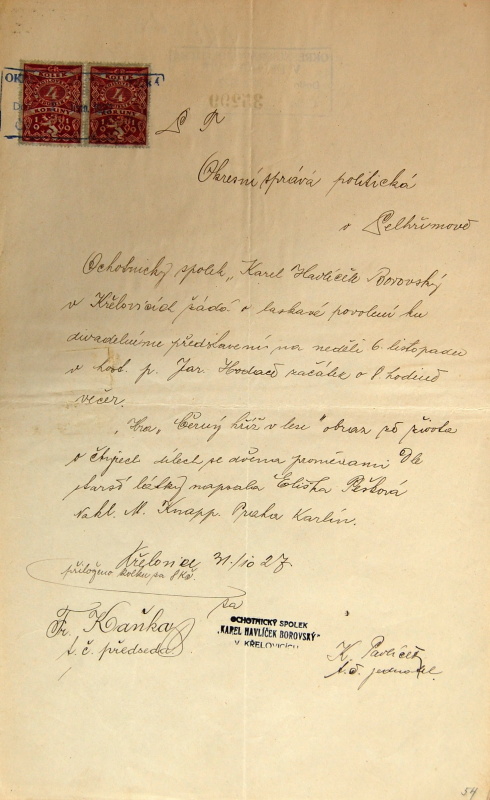 S P
Okresní správa politická
v Pelhřimově
Ochotnický spolek „Karel Havlíček Borovský
v Křelovicích žádá o laskavé povolení ku
divadelnímu představení na neděli 6. listopadu
v host. p. Jar. začátek o 8. hodině
večer.
„Hra „Černý kříž v lese" obraz ze života
o čtyřech dílech se dvěma proměnami Dle
starší látky napsala Eliška Pešková
Nakl. M. Knapp. Praha Karlín.
Křelovice 31./10 27.
přiloženo kolku za 8 Kč.
za
Fr. Kaňka
t. č. předseda
OCHOTNICKÝ SPOLEK
„KAREL HAVLÍČEK BOROVSKÝ"
V KŘELOVICÍCH
K. Pavlíček
t. č. jednatel.
54